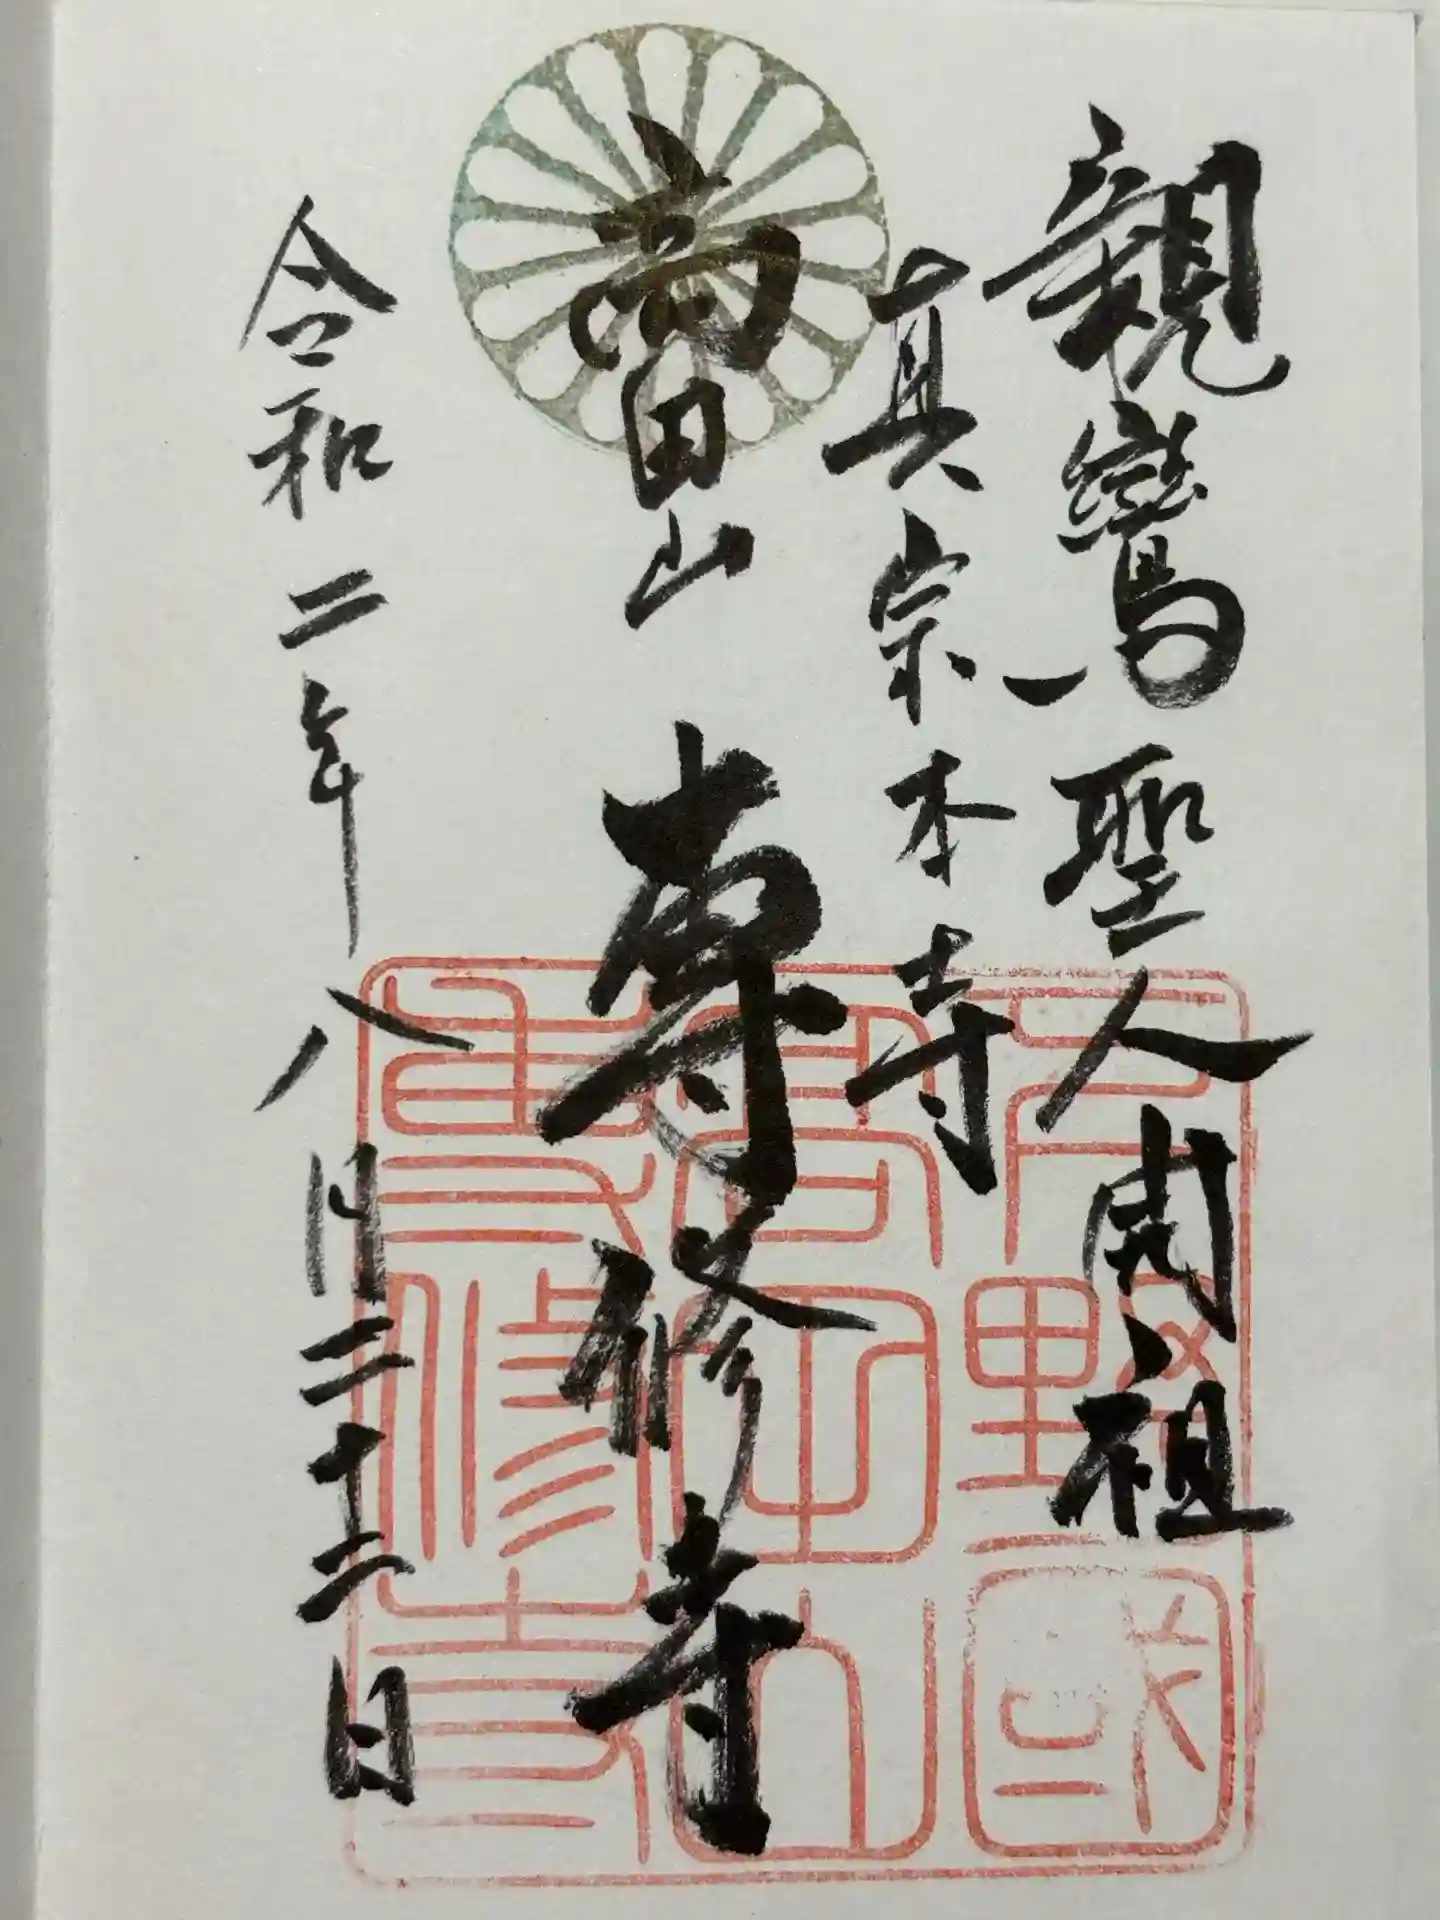 親鸞聖人開祖
真宗本寺
高田山 専修寺
令和二年八月二十二日
下野國
高田山
專修寺